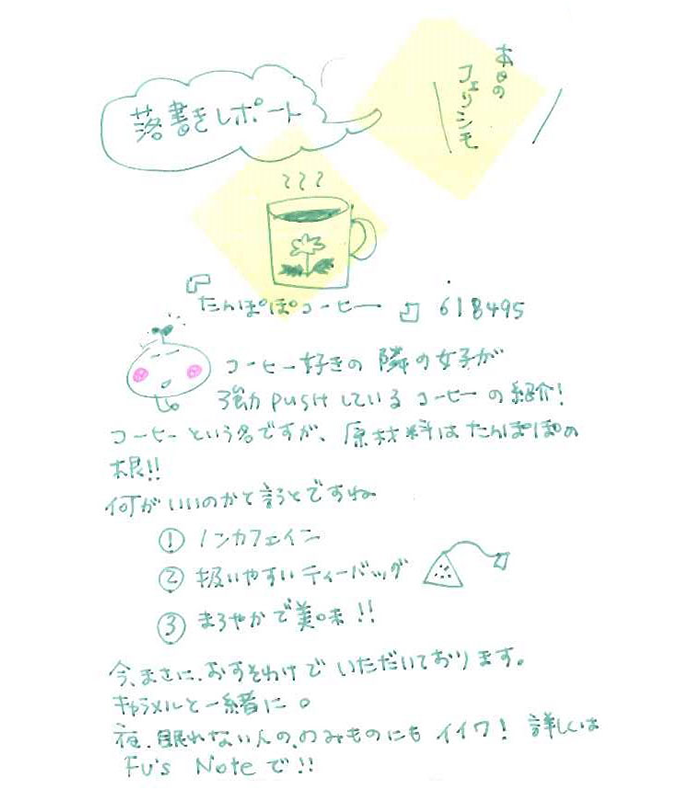 本日の
フェリシモ
落書きレポート
「たんぽぽコーヒー」 618495
コーヒー好きの 隣の女子が
強力pushしている コーヒーの紹介!
コーヒーという名ですが、原材料はたんぽぽの
根!!
何がいいのかと言うとですね
① ノンカフェイン
② 扱いやすい ティーバッグ
③ まろやかで美味!!
今、まさに、おすそわけで いただいております。
キャラメルと一緒に。
夜、眠れない人の、のみものにも イイワ! 詳しくは
Fu's Note で!!